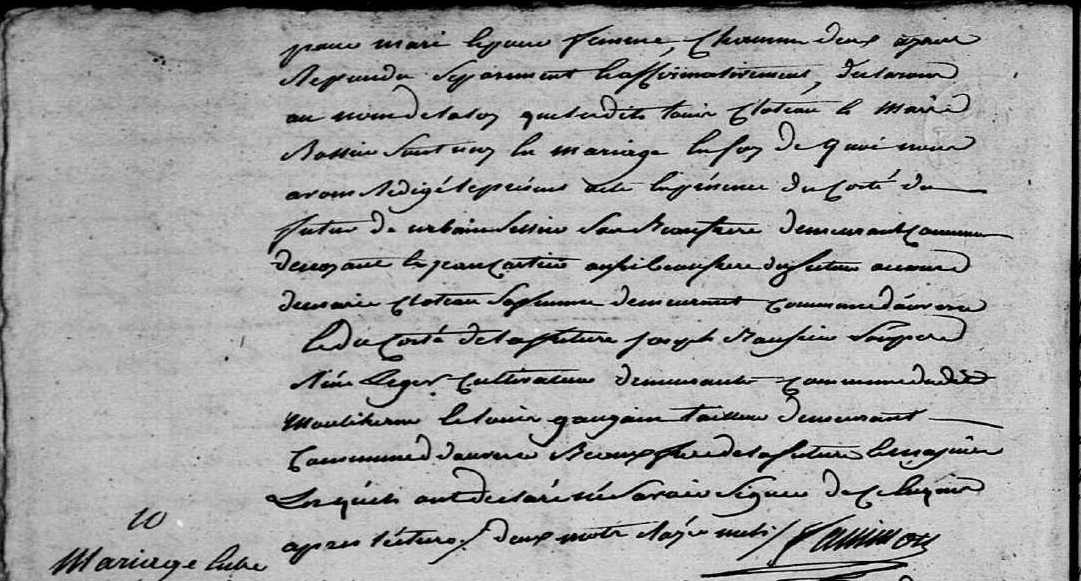 pour mari l'autre pour femme, Chacun deux ayant
Repondu Separement & affirmativement, declarons
au nom de la loy que lesdits Louis Cloteau & Marie
Rossieu Sont unis en mariage En foy de quoi nous
avons Redigé le présent acte En présence du Costé du
futur de urbain Sou Beaufrere demeurant Commune
denoyant & jean Cartier aussi beaufrere du futur accause
de marie Cloteau Safemme demeurant Commune dauverse
& du Costé de la future joseph Soupere
Réné Leger Cultivateur demeurants Commune dudit
Mouliherne & Louis gaugain tailleur demeurant
Commune dauverse Beaufrere de la future & majeurs
Lesquels ont declaré ne Savoir Signer de Ce Enquis
apres lecture / deux mots Rayés nuls /
10
Mariage Entre